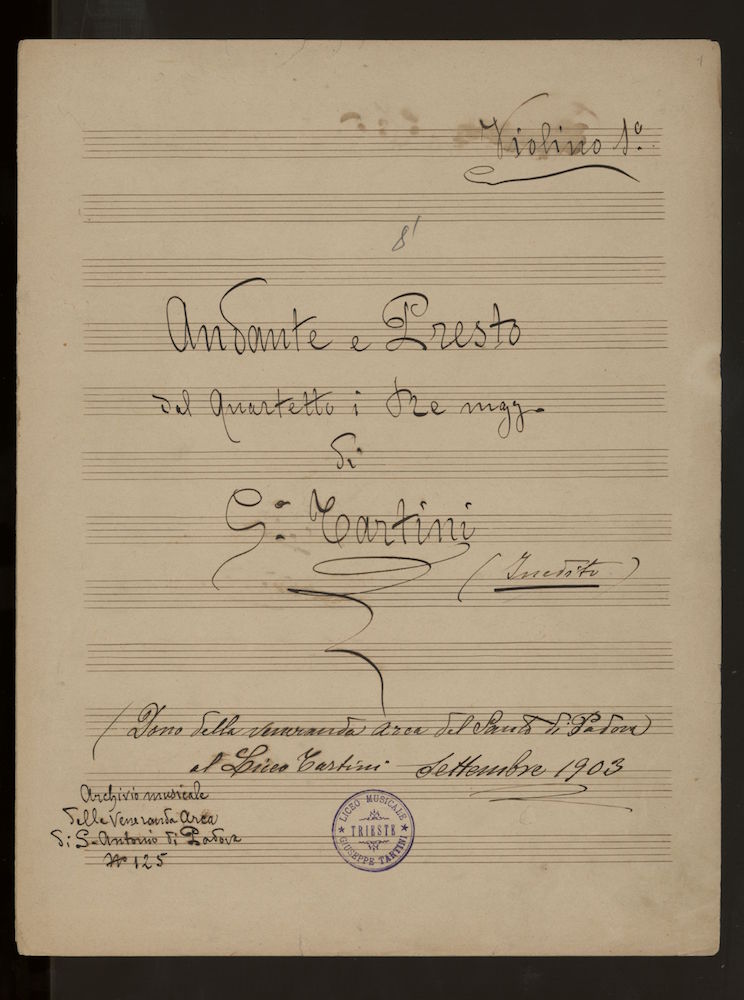 1
Violino 1º.
8
Andante e Presto
dal Quartetto i Re magg.
di
G. Tartini
(Inedito)
(Dono della veneranda arca del Santo di Padova)
al Liceo Tartini Settembre 1903
Archivio musicale
della Veneranda Arca
di S. Antonio di Padova
Nº 125
LICEO MUSICALE
TRIESTE
GIUSEPPE TARTINI